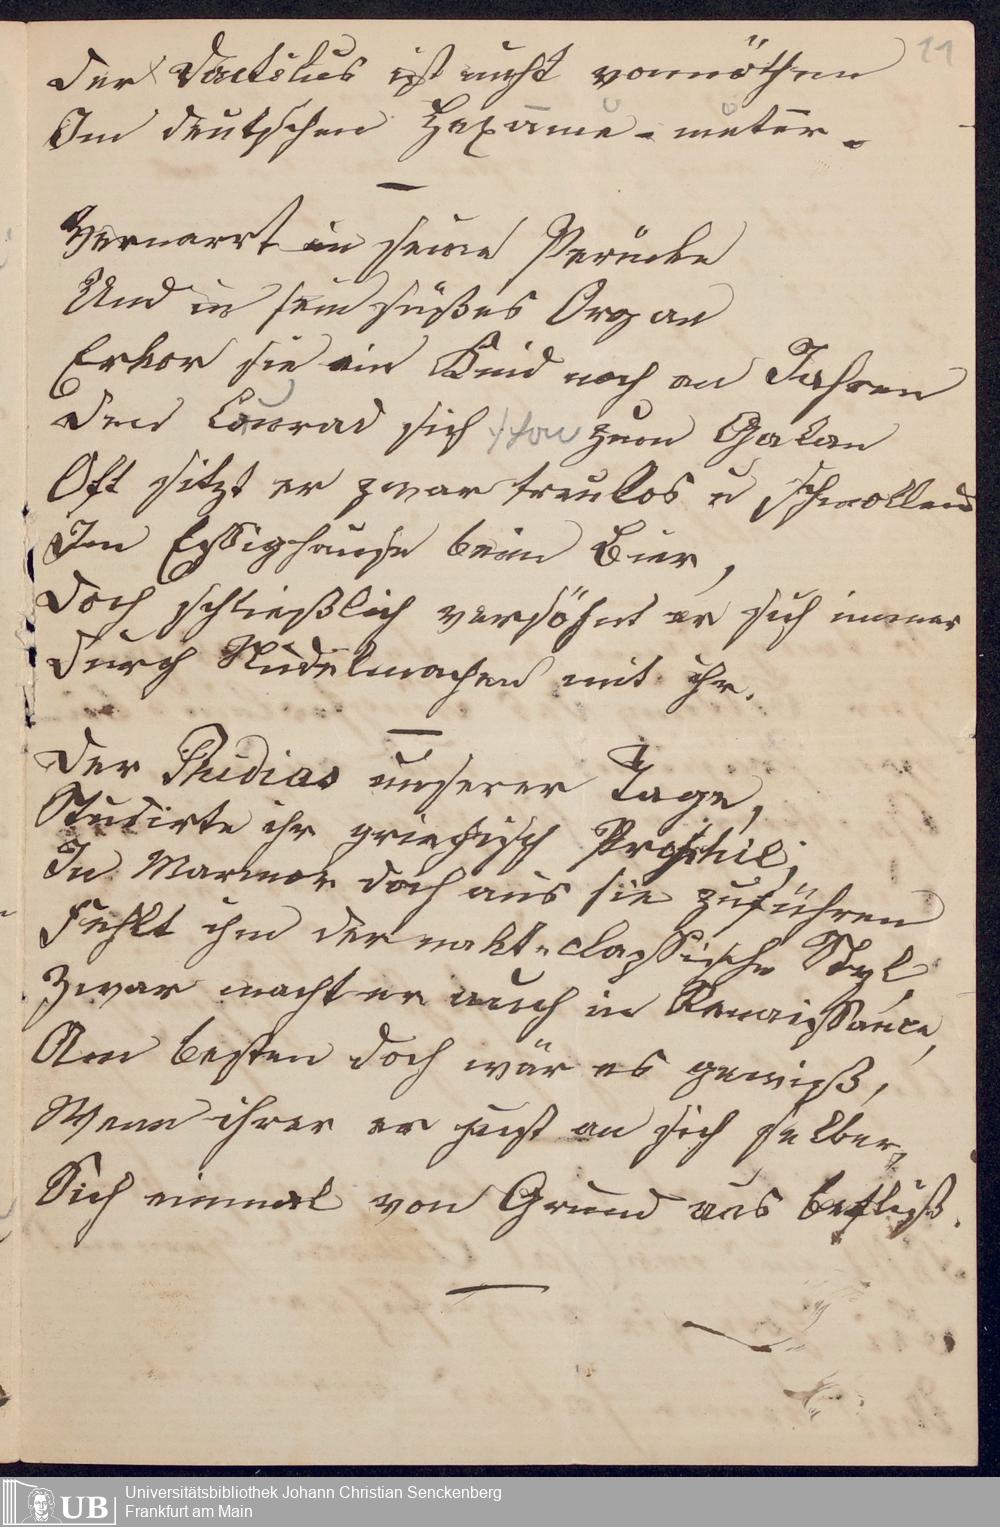 11
Der Dactilus ist nicht vonnöthen
Im deutschen Hexame-meter.
Vernarrt in seine Perücke
Und in sein süßes Organ
Erkor sie ein Kind noch an Jahren
Den Conrad sich schon zum Galan
Oft sitzt er zwar treulos u schmollend
Im Essighause beim Bier,
Doch schließlich versöhnt er sich immer
Durch Nudelmachen mit ihr.
Der Phidias unserer Tage,
Studirte ihr griechisch Profil,
In Marmor doch aus sie zuführen
Fehlt ihm der nakt-classische Styl,
Zwar macht er auch in Renaissance,
Am besten doch wär es gewiß,
Wenn ihrer er just an sich selber,
Sich einmal von Grund aus befliß.
UB
Universitätsbibliothek Johann Christian Senckenberg
Frankfurt am Main